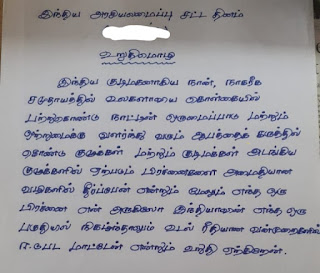 இந்திய அரசியலமைப்பு சட்ட தினம்
உறுதிமொழி
இந்திய குடிமகனாகிய நான், நாகரீக
சமுதாயத்தில் உலகளாவிய கொள்கையில்
பற்றுகொண்டு நாட்டின் ஒருமைப்பாடு மற்றும்
ஒற்றுமைக்கு வளர்ந்து வரும் ஆபத்தைக் கருத்தில்
கொண்டு குழுக்கள் மற்றும் குடிமக்கள் அடங்கிய
குழுக்களில் ஏற்படும் பிரச்சனைகளை அமைதியான
வழிகளில் தீர்ப்பேன் என்றும் மேலும் எந்த ஒரு
பிரச்சனை என் அருகிலோ இந்தியாவின் எந்த ஒரு
பகுதியில் நிகழ்ந்தாலும் உடல் ரீதியான வன்முறைகளில்
ஈடுபட மாட்டேன் என்றும் உறுதி ஏற்கிறேன்.